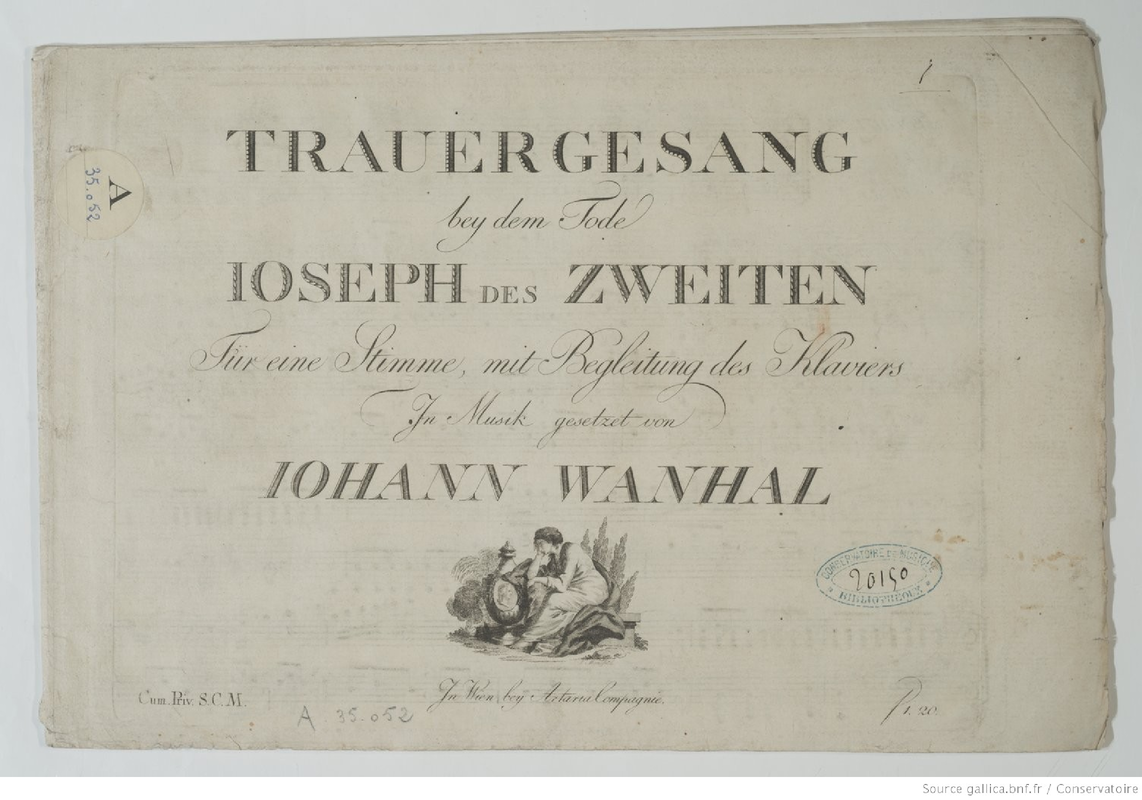 1
A
35.052
TRAUERGESANG
bey dem Tode
IOSEPH DES ZWEITEN
Für eine Stimme, mit Begleitung des Klaviers
In Musik gesetzet von
IOHANN WANHAL
CONSERVATOIRE DE MUSIQUE
20150
BIBLIOTHÈQUE
Cum. Priv. S. C. M.
In Wien, beÿ Artaria Compagnie.
1. 20.
A 35.052
Source gallica.bnf.fr / Conservatoire